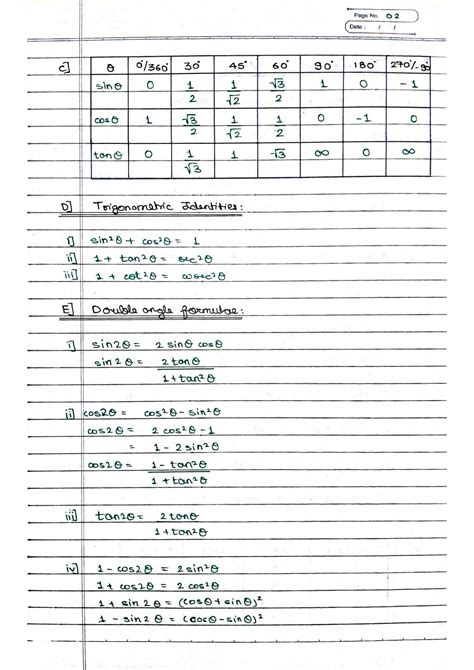 Page No. 02
Date: / /
C] θ 0°/360° 30° 45° 60° 90° 180° 270°/-90°
sinθ 0 1/2 1/√2 √3/2 1 0 -1
cosθ 1 √3/2 1/√2 1/2 0 -1 0
tanθ 0 1/√3 1 √3 ∞ 0 ∞
D] Trigonometric Identities:
i] sin²θ + cos²θ = 1
ii] 1 + tan²θ = sec²θ
iii] 1 + cot²θ = cosec²θ
E] Double angle formulae:
i] sin2θ = 2 sinθ cosθ
sin2θ = 2tanθ
1+tan²θ
ii] cos2θ = cos²θ - sin²θ
cos2θ = 2 cos²θ - 1
= 1 - 2 sin²θ
cos2θ = 1 - tan²θ
1 + tan²θ
iii] tan2θ = 2tanθ
1+tan²θ
iv] 1 - cos2θ = 2sin²θ
1 + cos2θ = 2 cos²θ
1 + sin2θ = (cosθ+sinθ)²
1 - sin2θ = (cosθ-sinθ)²